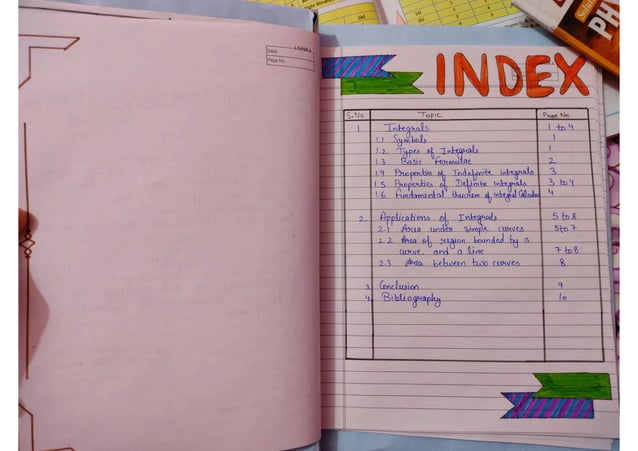 Date:
Page No.
INDEX
S.No. Topic Page No.
1. Integrals 1 to 4
1.1 Symbols 1
1.2 Types of Integrals 1
1.3 Basic formulae 2
1.4 Properties of Indefinite integrals 3
1.5 Properties of Definite integrals 3 to 4
1.6 Fundamental theorem of Integral Calculus 4
2. Applications of Integrals 5 to 8
2.1 Area under simple curves 5 to 7
2.2 Area of region bounded by a
curve and a line 7 to 8
2.3 Area between two curves 8
3. Conclusion 9
4. Bibliography 10
PH